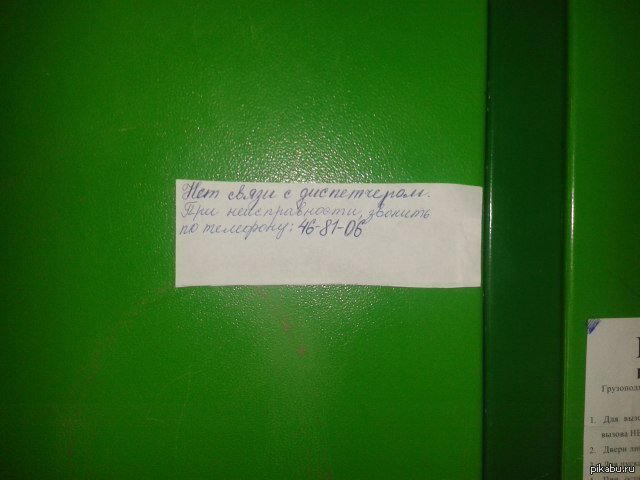 Нет связи с диспетчером.
При неисправности, звонить
по телефону: 46-81-06
Грузопод
1. Для вызо
вызова НЕ
2. Двери ли
pikabu.ru